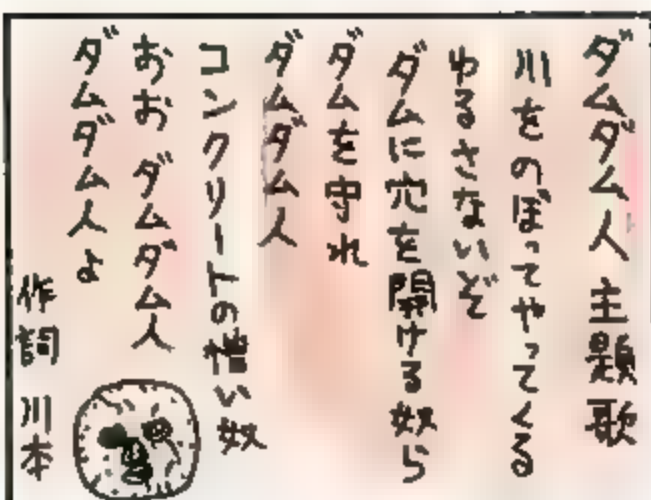 ダムダム人 主題歌
川をのぼってやってくる
ゆるさないぞ
ダムに穴を開ける奴ら
ダムを守れ
ダムダム人
コンクリートの憎い奴
おお ダムダム人
ダムダム人よ
作詞 川本